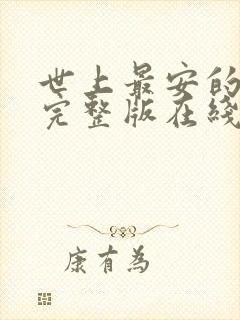 世上最安的
完整版在綫
康有為